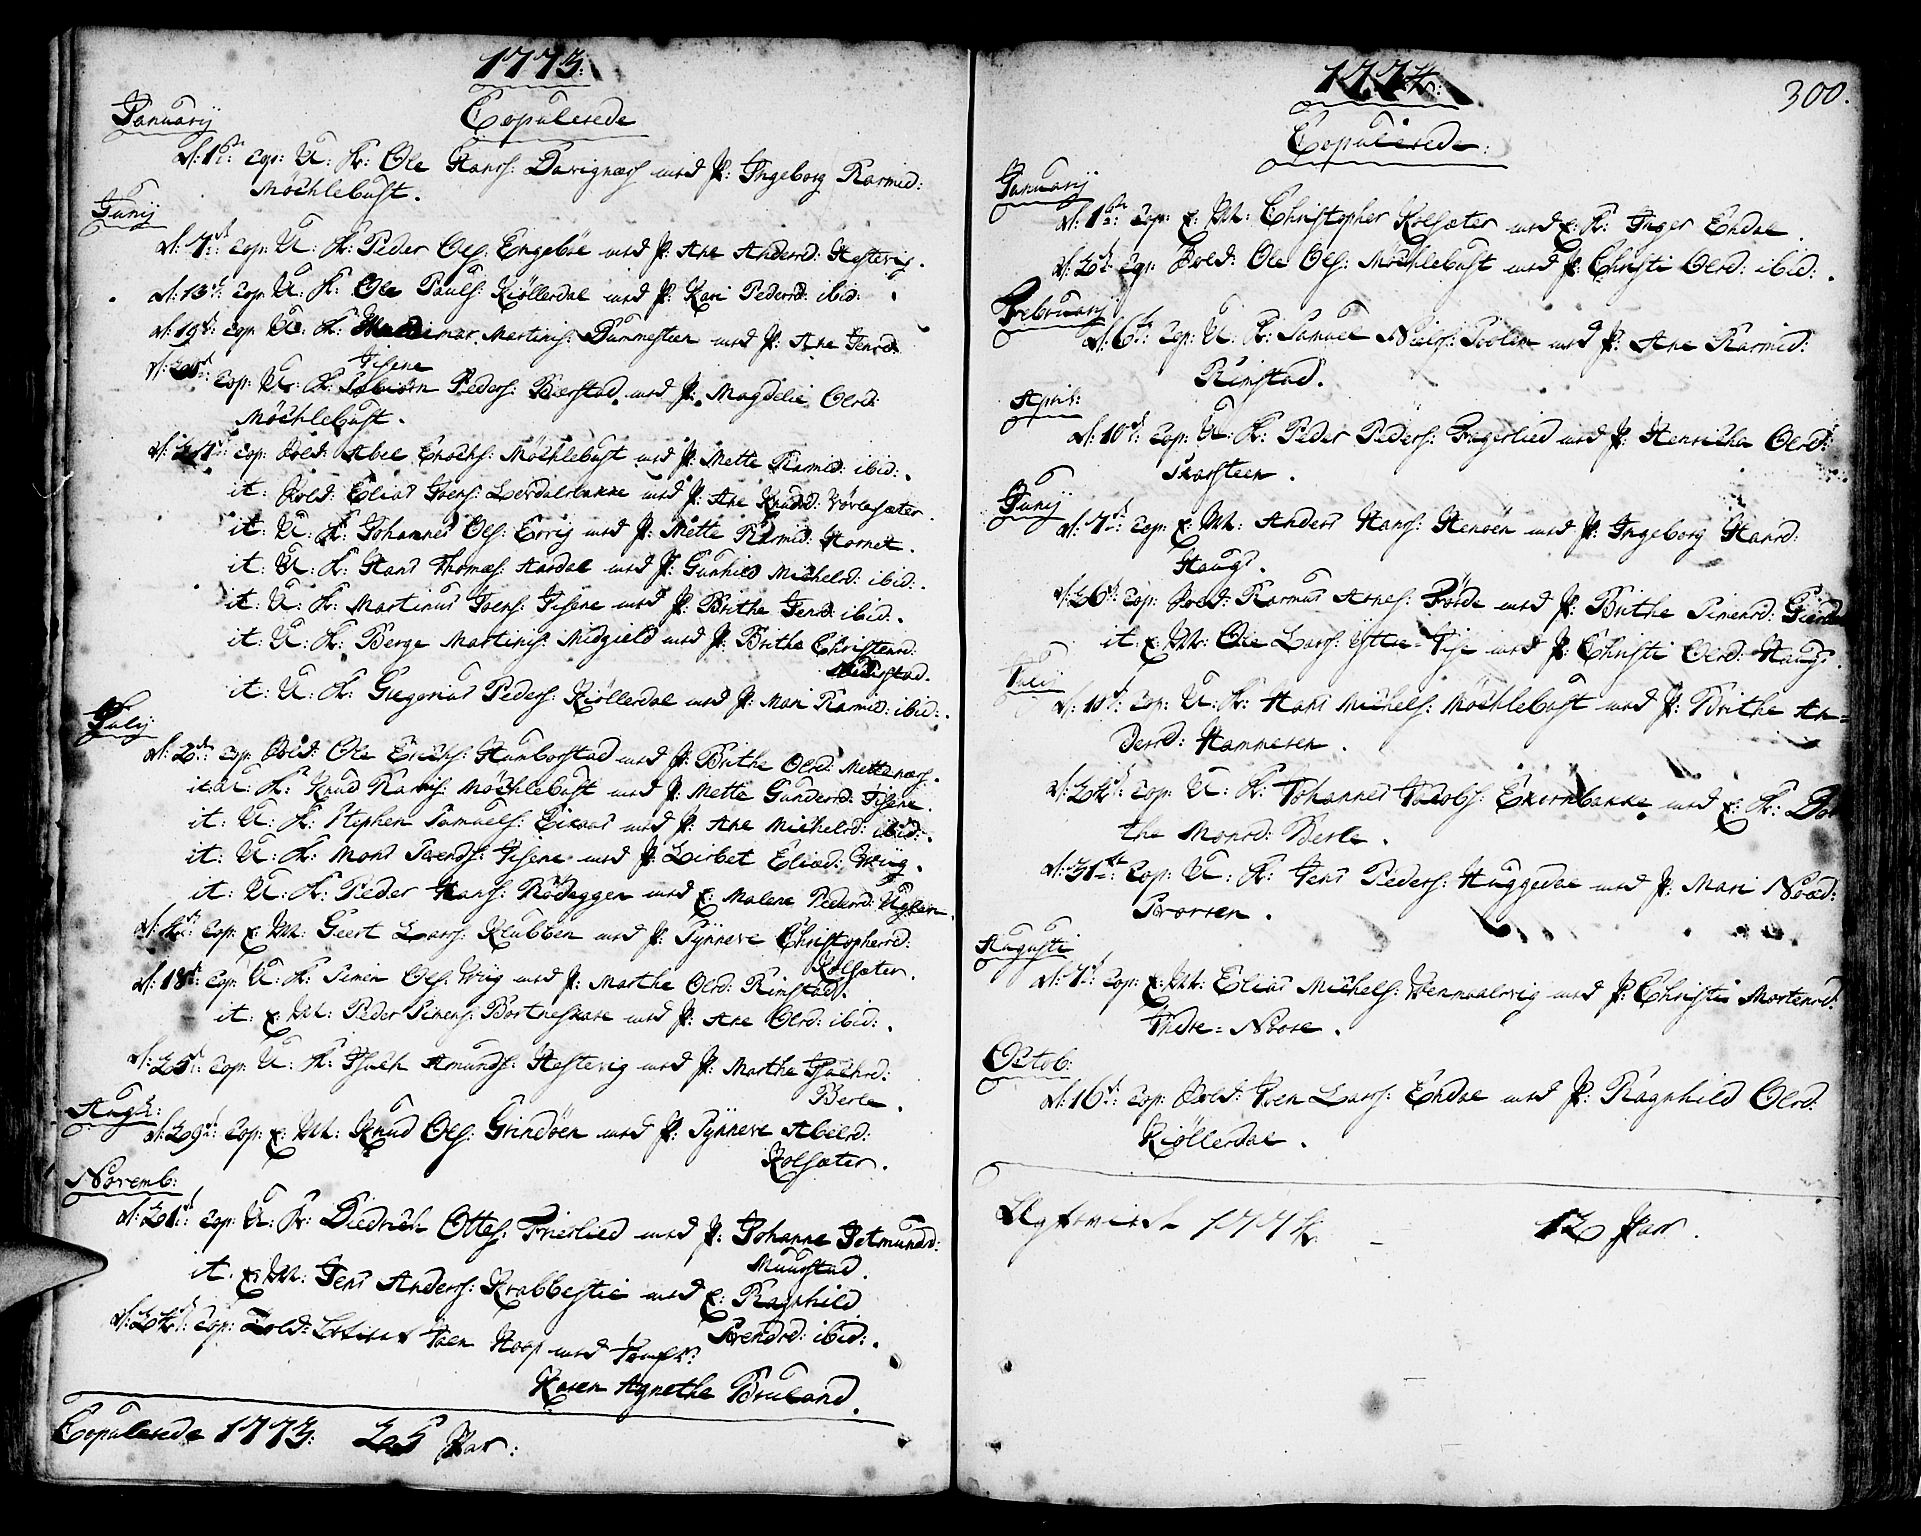 1773.
Copulerede
January
d: 1ste: Cop: U: K: Ole Hans: Davignæs med P: Ingeborg Rasmid:
Möchlebust.
Junij
d: 7de: Cop: U: K: Peder Ols: Engeböe med P: Ane Andersd: Hestevig.
d: 13de: Cop: U: K: Ole Pauls: Kiöllerdal med P: Kari Pedersd: ibid:
d: 19de: Cop: U: K: Martinis: Dunmesteen med P: Ane Jensd:
Cop: U: K: Peders: Bærstad med P: Magdelie Olsd:
Tisene
Möchlebust.
Cop: Sold: Abel Enochs: Möchlebust med P: Mette Rasmid: ibid:
it: Sold: Elias Joens: Lövdalsbakke med P: Ane Knudsd: Vörlesæter.
it: U: K: Johannes Ols: Ervig med P: Mette Rasmid: Hornet.
it: U: K: Hans Thomæs: Aardal med P: Gunhild Michelsd: ibid:
it: U: K: Martinus Joens: Tisene med P: Brithe Jensd: ibid:
it: U: K: Berge Martinis: Midgield med P: Brithe Christensd:
it: U: K: Gregorius Peders: Kiöllerdal med P: Mari Rasmid: ibid:
Julij
d: 2den: Cop: Sold: Ole Erichs: Humborstad med P: Brithe Olsd: Mettenæs.
it: U: K: Knud Rasmis: Möchlebust med P: Mette Gundersd: Tisene.
it: U: K: Stephen Samuels: Eikaas med P: Ane Michelsd: ibid:
it: U: K: Mons Svends: Tisene med P: Lisbet Eliæd: Wiig.
it: U: K: Peder Hans: Rödeggen med E: Malene Pedersd: Ugleen.
d: 4de: Cop: E: M: Geert Lars: Klubben med P: Synneve Christophersd:
Kolsæter.
d: 18de: Cop: U: K: Simen Ols: Wiig med P: Marthe Olsd: Rimstad.
it: E: M: Peder Simens: Bortneskare med P: Ane Olsd: ibid:
d: 25de: Cop: U: K: Isach Amunds: Hestevig med P: Marthe Isachsd:
Berle.
Aug:
d: 29de: Cop: E: M: Knud Ols: Grindöen med P: Synneve Abelsd:
Kolsæter.
Novemb:
d: 21de: Cop: U: K: Diedrich Ottes: Frieslied med P: Johanne Jetmundsd:
Muustad.
it: E: M: Jens Anders: Krabbestie med E: Ragnhild
Svendsd: ibid:
d: 24de: Cop: Joen Hoop med Jomfr:
Karen Agnethe Bruland.
Copulerede 1773: 25 Par:
300.
1774.
Copulerede:
January
d: 1ste: Cop: E: M: Christopher Kolsæter med E: K: Inger Endal.
d: 2de: Cop: Sold: Ole Ols: Möchlebust med P: Christi Olsd: ibid:
February
d: 6te: Cop: U: K: Samuel Niels: med P: Ane Rasmid:
Rimstad.
April:
d: 10de: Cop: U: K: Peder Peders: Fugerlied med P: Henricha Olsd:
Skarsteen.
Junij
d: 7de: Cop: E: M: Anders Hans: Henöen med P: Ingeborg Hansd:
Haugs.
d: 26de: Cop: Sold: Rasmus Arnes: Förde med P: Brithe Simensd:
it: E: M: Ole Lars: Yttre-Hje med P: Christi Olsd: Haugs.
Julij
d: 11de: Cop: U: K: Hans Michels: Möchlebust med P: Brithe An=
dersd: Hammeren.
d: 24de: Cop: U: K: Johannes Jacobs: Ekornbakke med E: K: Dor
the Monsd: Berle.
d: 31te: Cop: U: K: Jens Peders: Huggedal med P: Mari
Augusti
d: 7de: Cop: E: M: Elias Michels: Wemmelsvig med P: Christi Mortensd:
Indre-Noore.
Octob:
d: 16de: Cop: Sold: Joen Lars: Endal med P: Ragnhild Olsd:
Kiöllerdal.
1774. - 12 Par.